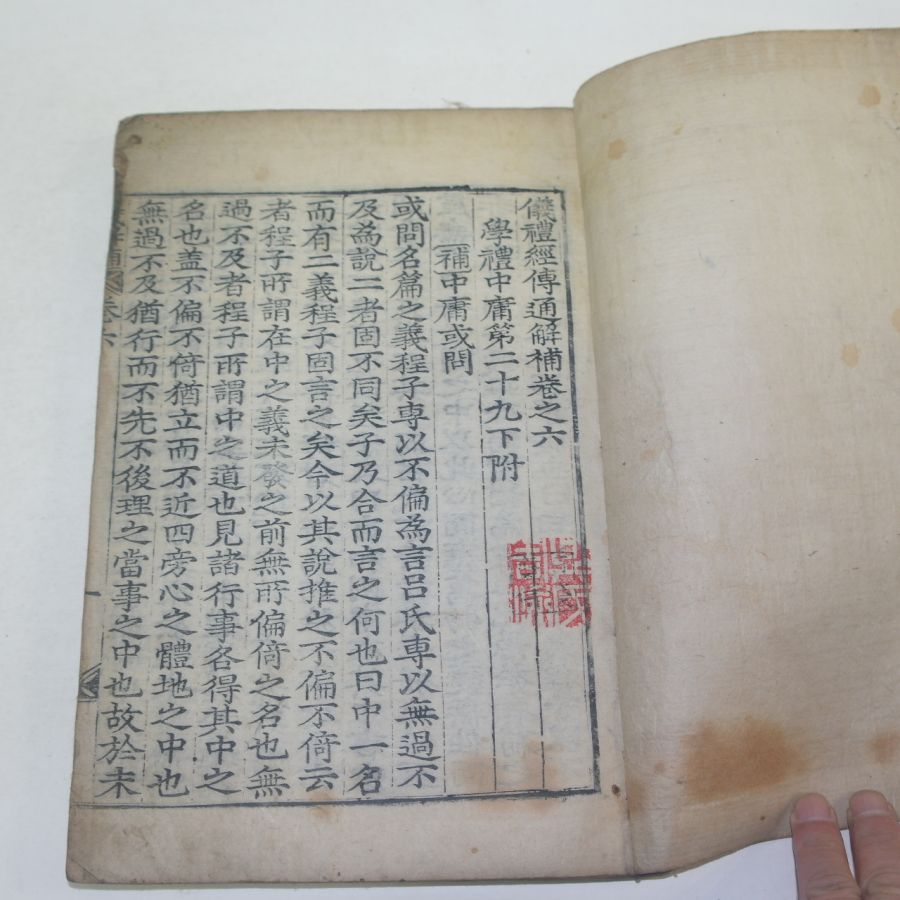 儀禮經傳通解補卷之六
學禮中庸第二十九下附
補中庸或問
或問名篇之義程子專以不偏為言呂氏專以無過不
及為說二者固不同矣子乃合而言之何也曰中一名
而有二義程子固言之矣今以其說推之不偏不倚云
者程子所謂在中之義未發之前無所偏倚之名也無
過不及者程子所謂中之道也見諸行事各得其中之
名也盖不偏不倚猶立而不近四旁心之體地之中也
無過不及猶行而不先不後理之當事之中也故於未